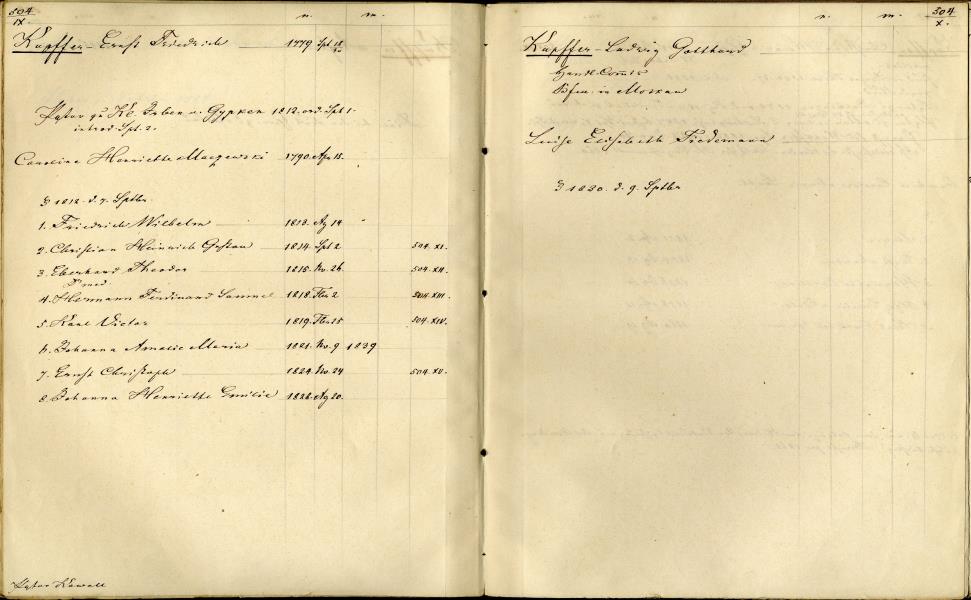 504
IX.
n. m.
Kupffer - Ernst Friedrich 1779 Spt 18
Pastor zu Kl. Irben u. Gypken 1812. ord. Spt 1.
introd. Spt. 2.
Caroline Henriette Maczewski 1790. Apr 15.
1812. d. 7. Sptbr.
1. Friedrich Wilhelm 1813. Ag 14
2. Christian Heinrich Gustav 1814. Spt 2 504. XI.
3. Eberhard Theodor 1815. Nv. 26. 504. XII.
4. Hermann Ferdinand Samuel 1818. Fbr 2 504. XIII.
5. Karl Victor 1819. Fbr 15 504. XIV.
6. Johanna Amalie Maria 1821. Nv. 9 1839
7. Ernst Christoph 1824. Nv. 24 504. XV.
8. Johanna Henriette Emilie 1828. Ag 20.
Pastor Kawall
n. m. 504
X.
Kupffer - Ludwig Gotthard
in Moskau
Luise Elisabeth Tiedemann
1830. d. 9. Sptbr